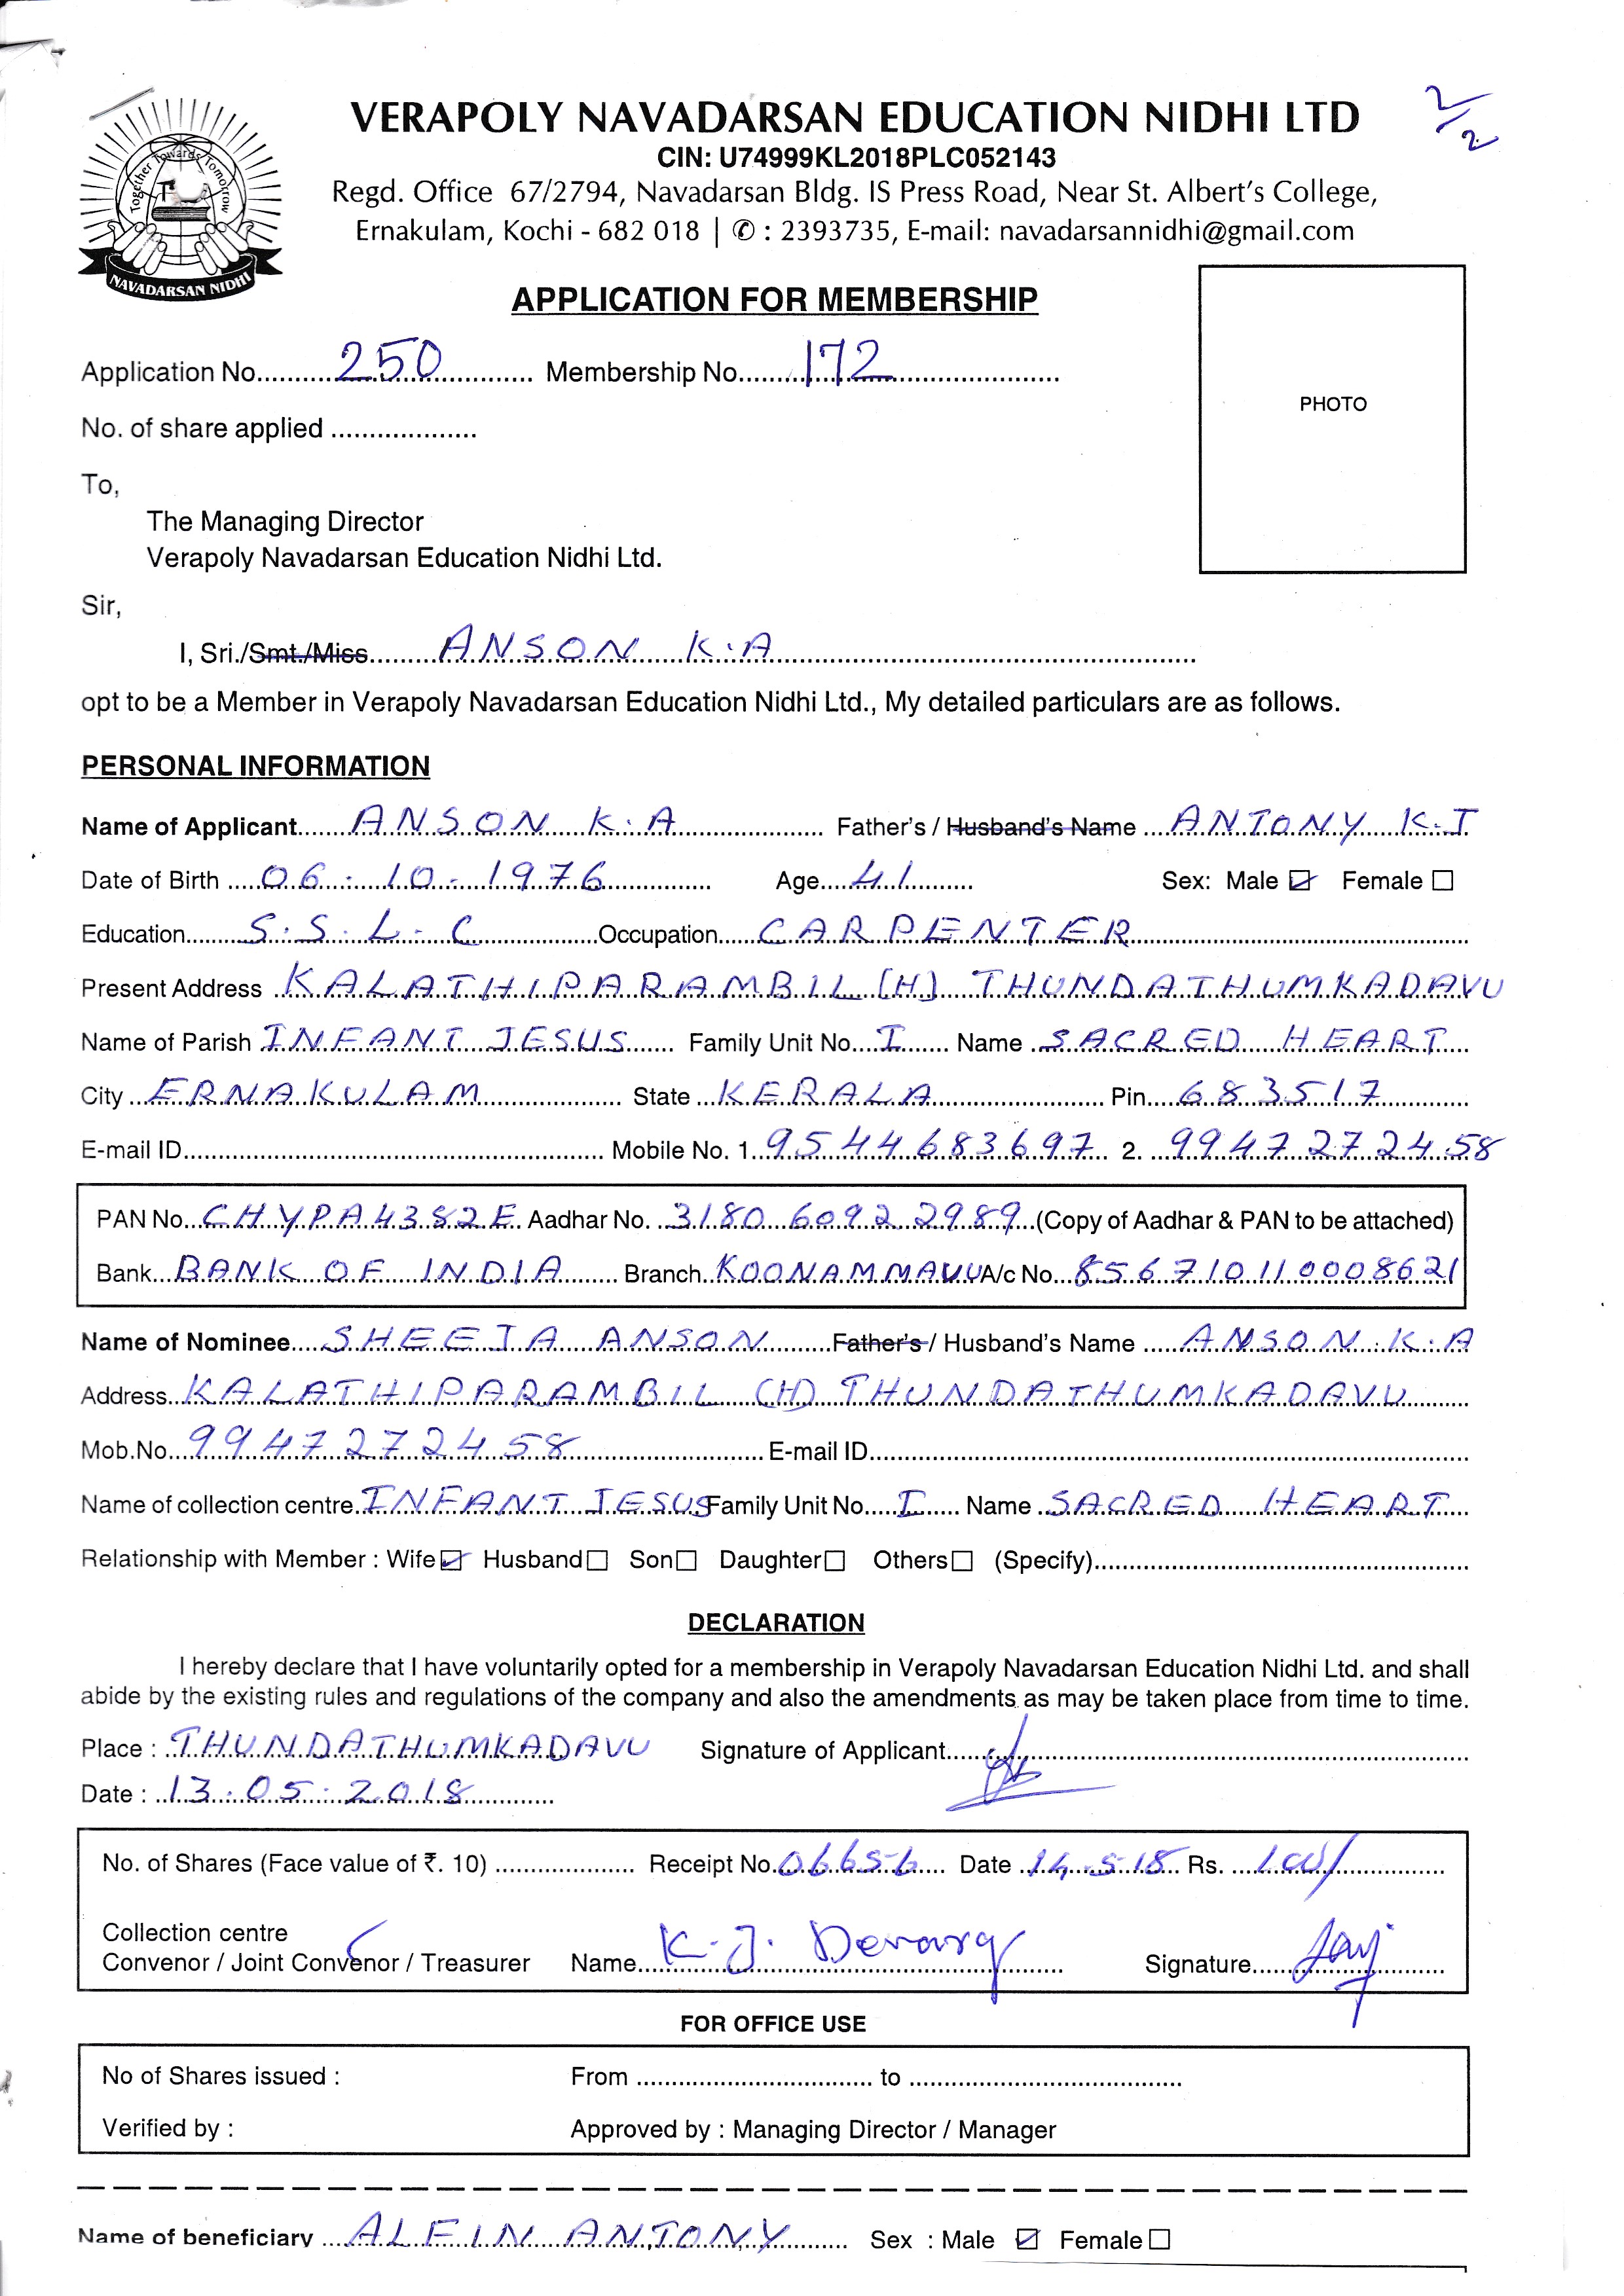 VERAPOLY NAVADARSAN EDUCATION NIDHI LTD
2/2
CIN: U74999KL2018PLC052143
Regd. Office 67/2794, Navadarsan Bldg. IS Press Road, Near St. Albert's College,
Ernakulam, Kochi - 682 018 | ✆ : 2393735, E-mail: navadarsannidhi@gmail.com
Together Towards Tomorrow
NAVADARSAN NIDHI
APPLICATION FOR MEMBERSHIP
Application No. 250 Membership No. 172
No. of share applied
PHOTO
To,
The Managing Director
Verapoly Navadarsan Education Nidhi Ltd.
Sir,
I, Sri./Smt./Miss ANSON K.A
opt to be a Member in Verapoly Navadarsan Education Nidhi Ltd., My detailed particulars are as follows.
PERSONAL INFORMATION
Name of Applicant ANSON K.A Father's / Husband's Name ANTONY K.J
Date of Birth 06-10-1976 Age 41 Sex: Male ☑ Female ☐
Education S.S.L.C Occupation CARPENTER
Present Address KALATHIPARAMBIL (H) THUNDATHUMKADAVU
Name of Parish INFANT JESUS Family Unit No. I Name SACRED HEART
City ERNAKULAM State KERALA Pin 683517
E-mail ID Mobile No. 1. 9544683697 2. 9947272458
PAN No. CHYPA4382E Aadhar No. 3180 6092 2989 (Copy of Aadhar & PAN to be attached)
Bank BANK OF INDIA Branch KOONAMMAVU A/c No. 856710110008621
Name of Nominee SHEEJA ANSON Father's / Husband's Name ANSON K.A
Address KALATHIPARAMBIL (H) THUNDATHUMKADAVU
Mob.No. 9947272458 E-mail ID
Name of collection centre INFANT JESUS Family Unit No. I Name SACRED HEART
Relationship with Member : Wife ☑ Husband ☐ Son ☐ Daughter ☐ Others ☐ (Specify)
DECLARATION
I hereby declare that I have voluntarily opted for a membership in Verapoly Navadarsan Education Nidhi Ltd. and shall
abide by the existing rules and regulations of the company and also the amendments as may be taken place from time to time.
Place : THUNDATHUMKADAVU Signature of Applicant
Date : 13.05.2018
No. of Shares (Face value of ₹. 10) Receipt No. 06656 Date 14.5.18 Rs. 100/
Collection centre
Convenor / Joint Convenor / Treasurer Name K.J. Signature
FOR OFFICE USE
No of Shares issued : From to
Verified by : Approved by : Managing Director / Manager
Name of beneficiary ALFIN ANTONY Sex : Male ☑ Female ☐